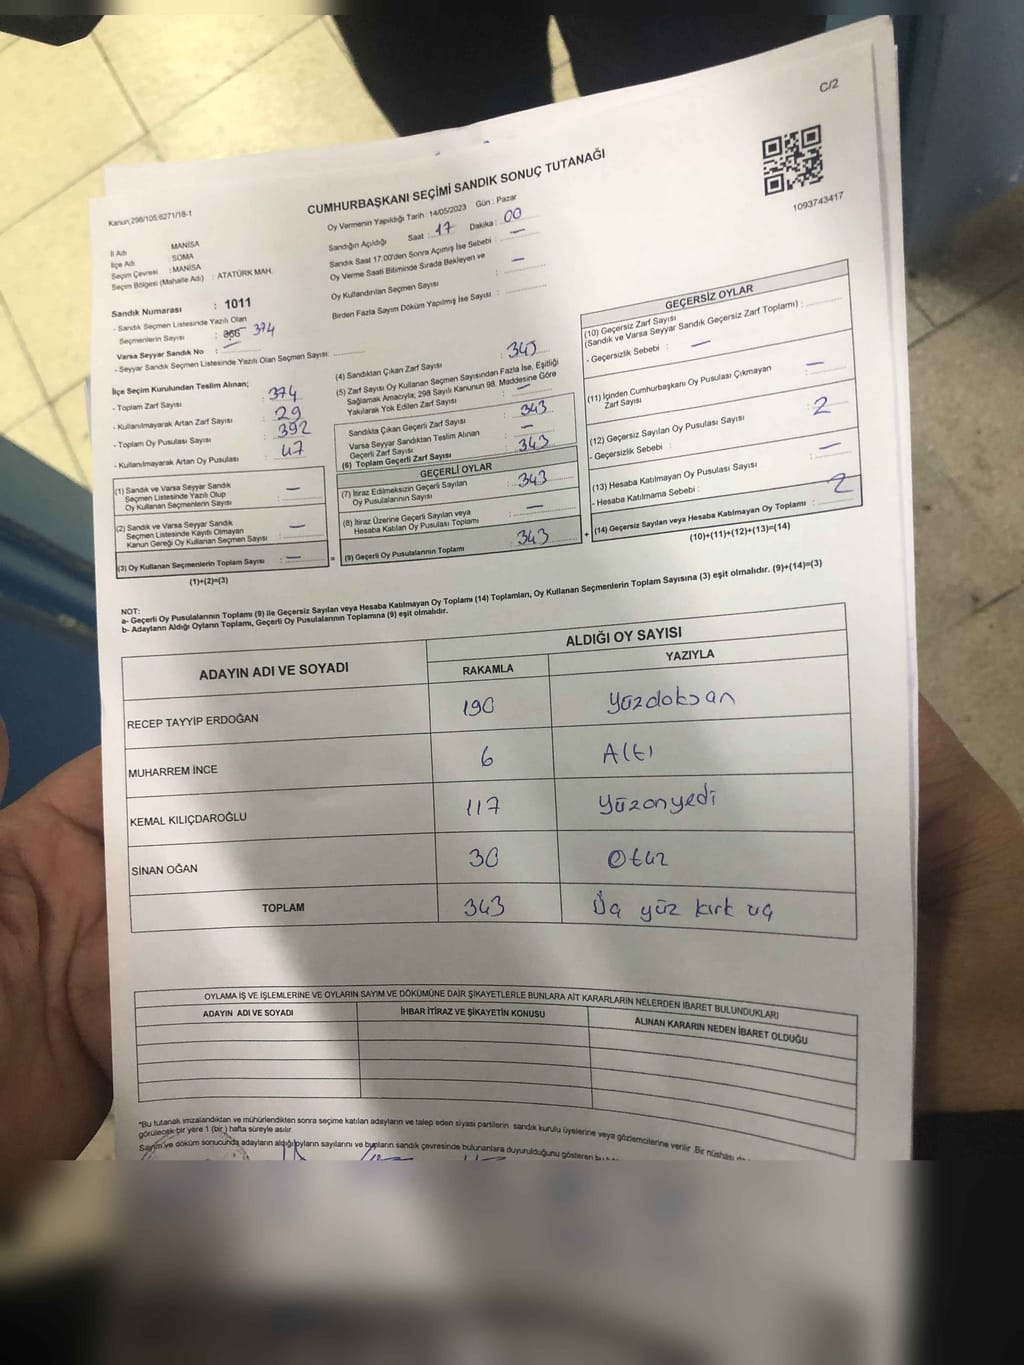 C/2
1093743417
Kanun:298/105;6271/18-1
CUMHURBAŞKANI SEÇİMİ SANDIK SONUÇ TUTANAĞI
İl Adı : MANİSA
İlçe Adı : SOMA
Seçim Çevresi : MANİSA
Seçim Bölgesi (Mahalle Adı) : ATATÜRK MAH.
Sandık Numarası : 1011
- Sandık Seçmen Listesinde Yazılı Olan
Seçmenlerin Sayısı : 374
Varsa Seyyar Sandık No :
- Seyyar Sandık Seçmen Listesinde Yazılı Olan Seçmen Sayısı:
Oy Vermenin Yapıldığı Tarih 14/05/2023 Gün : Pazar
Sandığın Açıldığı Saat : 17 Dakika : 00
Sandık Saat 17:00'den Sonra Açımış İse Sebebi : —
Oy Verme Saati Bitiminde Sırada Bekleyen ve
Oy Kullandırılan Seçmen Sayısı : —
Birden Fazla Sayım Döküm Yapılmış İse Sayısı :
İlçe Seçim Kurulundan Teslim Alınan;
- Toplam Zarf Sayısı : 374
- Kullanılmayarak Artan Zarf Sayısı : 29
- Toplam Oy Pusulası Sayısı : 392
- Kullanılmayarak Artan Oy Pusulası : 47
(1) Sandık ve Varsa Seyyar Sandık
Seçmen Listesinde Yazılı Olup
Oy Kullanan Seçmenlerin Sayısı : —
(2) Sandık ve Varsa Seyyar Sandık
Seçmen Listesinde Kayıtlı Olmayan
Kanun Gereği Oy Kullanan Seçmen Sayısı : —
(3) Oy Kullanan Seçmenlerin Toplam Sayısı : —
(1)+(2)=(3)
(4) Sandıktan Çıkan Zarf Sayısı :
(5) Zarf Sayısı Oy Kullanan Seçmen Sayısından Fazla İse, Eşitliği
Sağlamak Amacıyla; 298 Sayılı Kanunun 98. Maddesine Göre
Yakılarak Yok Edilen Zarf Sayısı : —
Sandıkta Çıkan Geçerli Zarf Sayısı : 343
Varsa Seyyar Sandıktan Teslim Alınan
Geçerli Zarf Sayısı : —
(6) Toplam Geçerli Zarf Sayısı : 343
GEÇERLİ OYLAR
(7) İtiraz Edilmeksizin Geçerli Sayılan
Oy Pusulalarının Sayısı : 343
(8) İtiraz Üzerine Geçerli Sayılan veya
Hesaba Katılan Oy Pusulası Toplamı : —
(9) Geçerli Oy Pusulalarının Toplamı : 343
GEÇERSİZ OYLAR
(10) Geçersiz Zarf Sayısı
(Sandık ve Varsa Seyyar Sandık Geçersiz Zarf Toplamı) :
- Geçersizlik Sebebi : —
(11) İçinden Cumhurbaşkanı Oy Pusulası Çıkmayan
Zarf Sayısı : —
(12) Geçersiz Sayılan Oy Pusulası Sayısı : 2
- Geçersizlik Sebebi :
(13) Hesaba Katılmayan Oy Pusulası Sayısı : —
- Hesaba Katılmama Sebebi :
(14) Geçersiz Sayılan veya Hesaba Katılmayan Oy Toplamı : 2
(10)+(11)+(12)+(13)=(14)
NOT:
a- Geçerli Oy Pusulalarının Toplamı (9) ile Geçersiz Sayılan veya Hesaba Katılmayan Oy Toplamı (14) Toplamları, Oy Kullanan Seçmenlerin Toplam Sayısına (3) eşit olmalıdır. (9)+(14)=(3)
b- Adayların Aldığı Oyların Toplamı, Geçerli Oy Pusulalarının Toplamına (9) eşit olmalıdır.
ADAYIN ADI VE SOYADI ALDIĞI OY SAYISI
RAKAMLA YAZIYLA
RECEP TAYYİP ERDOĞAN 190 Yüzdoksan
MUHARREM İNCE 6 Altı
KEMAL KILIÇDAROĞLU 117 Yüzonyedi
SİNAN OĞAN 30 Otuz
TOPLAM 343 Üç yüz kırk üç
OYLAMA İŞ VE İŞLEMLERİNE VE OYLARIN SAYIM VE DÖKÜMÜNE DAİR ŞİKAYETLERLE BUNLARA AİT KARARLARIN NELERDEN İBARET BULUNDUKLARI
ADAYIN ADI VE SOYADI İHBAR İTİRAZ VE ŞİKAYETİN KONUSU ALINAN KARARIN NEDEN İBARET OLDUĞU
*Bu tutanak imzalandıktan ve mühürlendikten sonra seçime katılan adayların ve talep eden siyasi partilerin sandık kurulu üyelerine veya gözlemcilerine verilir. Bir nüshası da
görülecek bir yere 1 (bir) hafta süreyle asılır.
Sayım ve döküm sonucunda adayların aldığı oyların sayılarını ve bunların sandık çevresinde bulunanlara duyurulduğunu gösteren